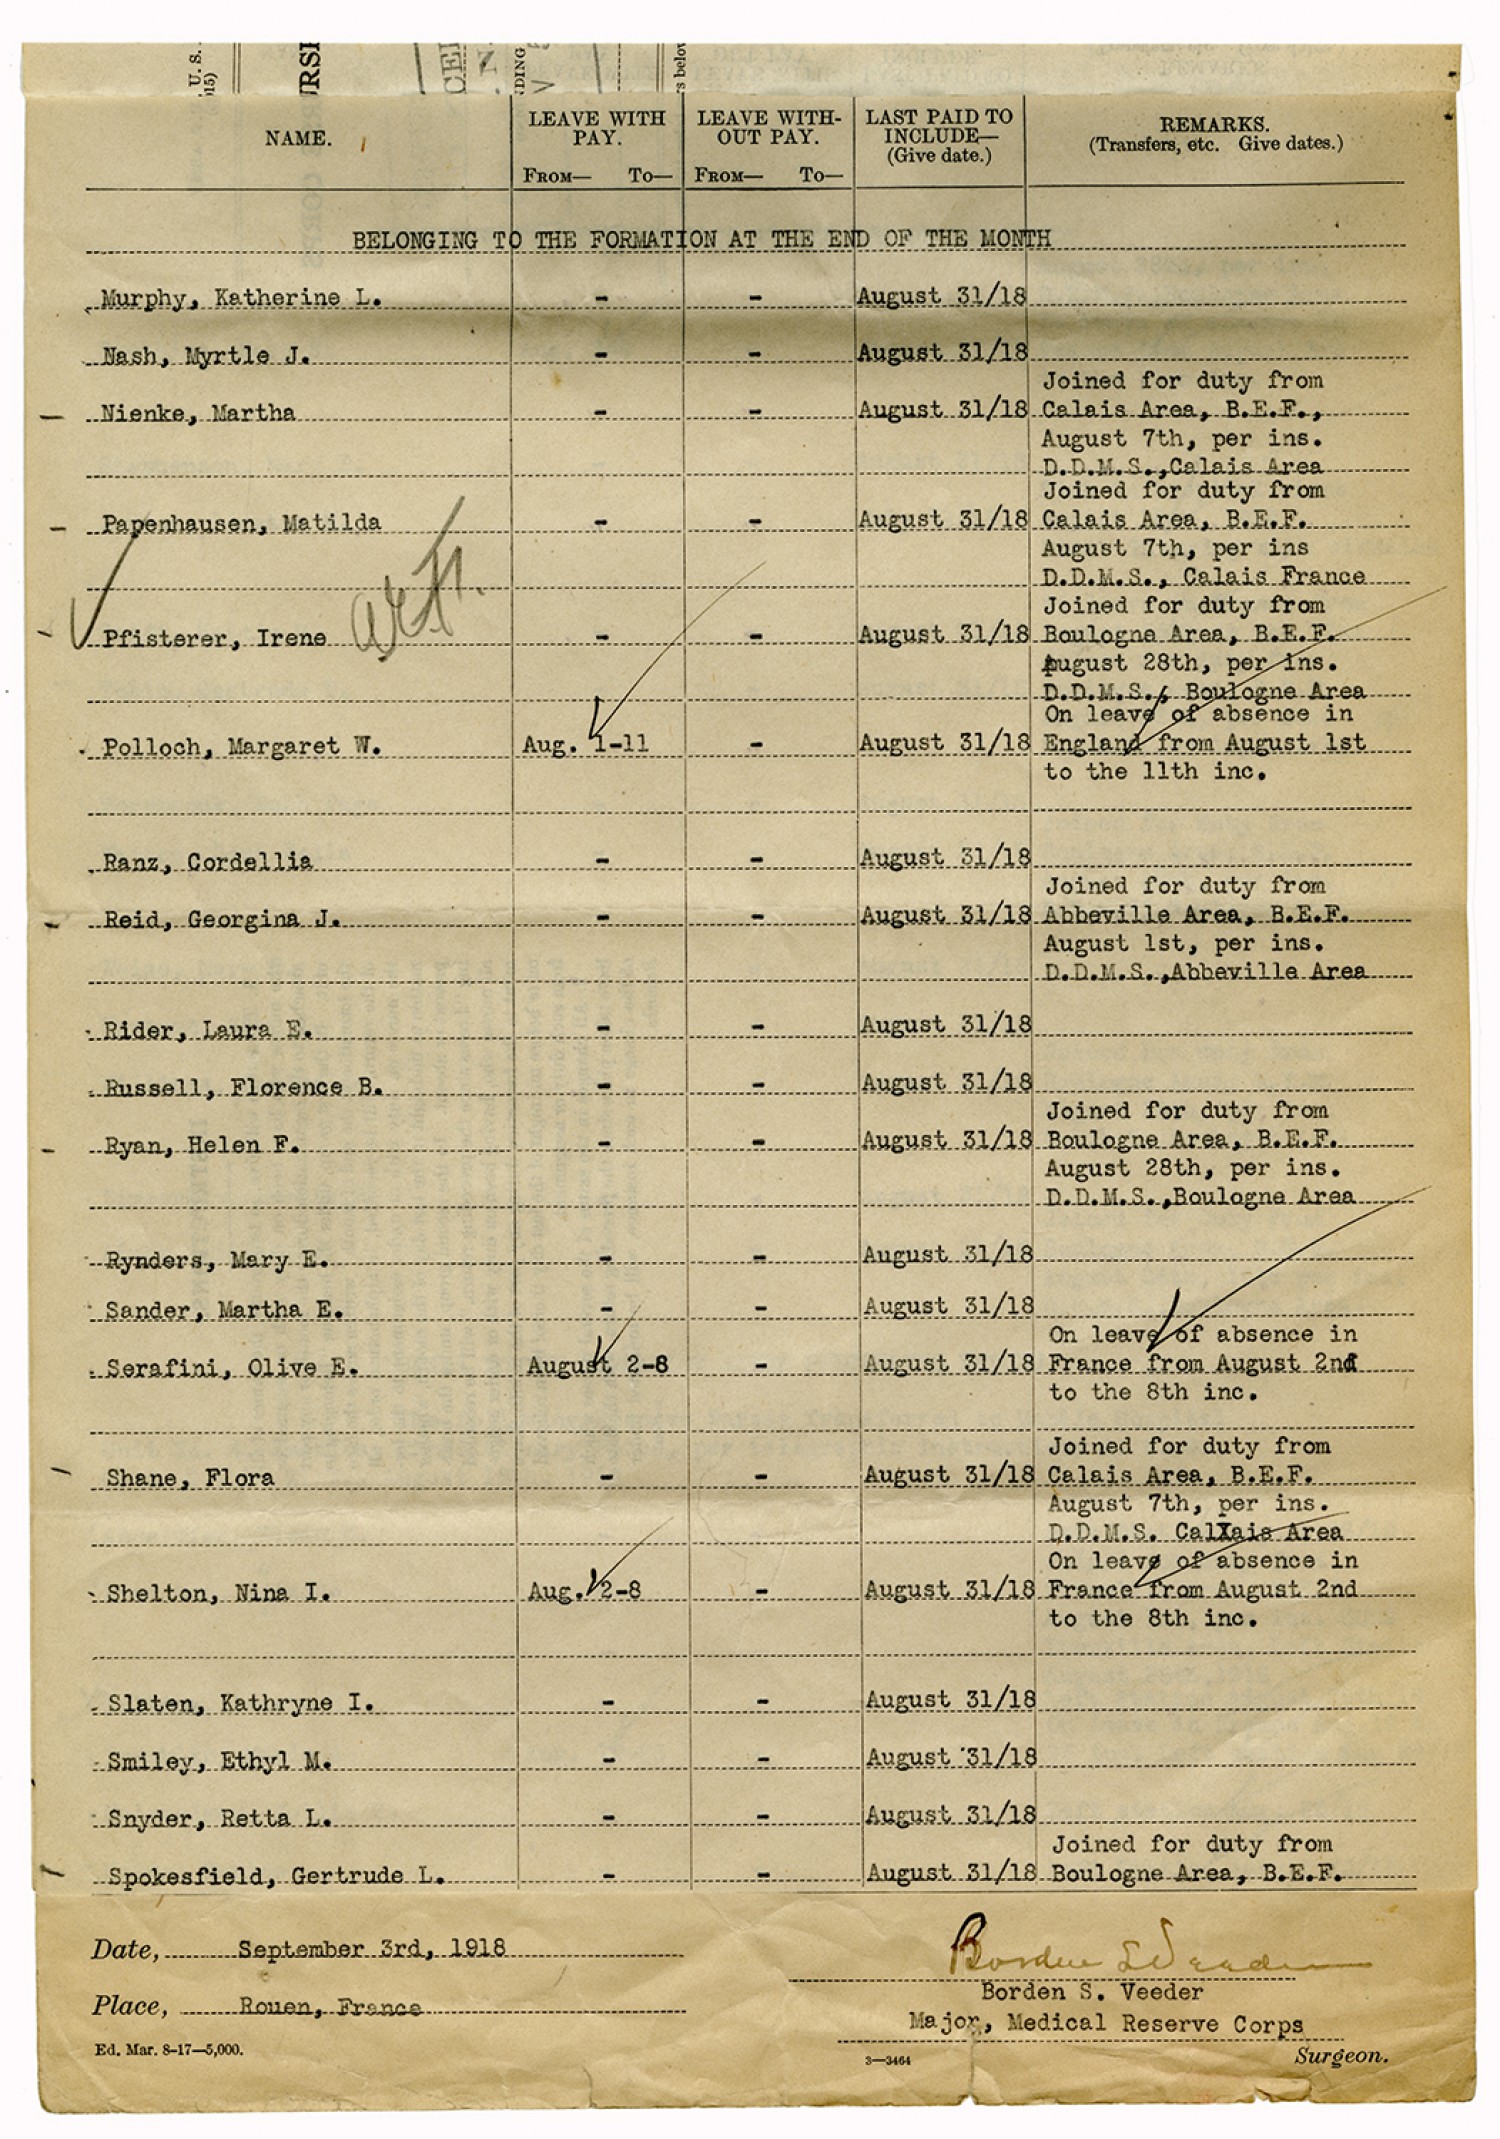 U. S.
15)
URSI
CEI
N.
DING
V
s below
NAME.
LEAVE WITH PAY.
From— To—
LEAVE WITH-OUT PAY.
From— To—
LAST PAID TO INCLUDE—
(Give date.)
REMARKS.
(Transfers, etc. Give dates.)
BELONGING TO THE FORMATION AT THE END OF THE MONTH
Murphy, Katherine L. - - August 31/18
Nash, Myrtle J. - - August 31/18
Joined for duty from
Nienke, Martha - - August 31/18 Calais Area, B.E.F.,
August 7th, per ins.
D.D.M.S.,Calais Area
Joined for duty from
Papenhausen, Matilda - - August 31/18 Calais Area, B.E.F.
August 7th, per ins
D.D.M.S., Calais France
Joined for duty from
Pfisterer, Irene - - August 31/18 Boulogne Area, B.E.F.
August 28th, per ins.
D.D.M.S., Boulogne Area
On leave of absence in
Polloch, Margaret W. Aug. 1-11 - August 31/18 England from August 1st
to the 11th inc.
Ranz, Cordellia - - August 31/18
Joined for duty from
Reid, Georgina J. - - August 31/18 Abbeville Area, B.E.F.
August 1st, per ins.
D.D.M.S.,Abbeville Area
Rider, Laura E. - - August 31/18
Russell, Florence B. - - August 31/18
Joined for duty from
Ryan, Helen F. - - August 31/18 Boulogne Area, B.E.F.
August 28th, per ins.
D.D.M.S.,Boulogne Area
Rynders, Mary E. - - August 31/18
Sander, Martha E. - - August 31/18
On leave of absence in
Serafini, Olive E. August 2-8 - August 31/18 France from August 2nd
to the 8th inc.
Joined for duty from
Shane, Flora - - August 31/18 Calais Area, B.E.F.
August 7th, per ins.
D.D.M.S. Calxais Area
On leave of absence in
Shelton, Nina I. Aug. 2-8 - August 31/18 France from August 2nd
to the 8th inc.
Slaten, Kathryne I. - - August 31/18
Smiley, Ethyl M. - - August 31/18
Snyder, Retta L. - - August 31/18
Joined for duty from
Spokesfield, Gertrude L. - - August 31/18 Boulogne Area, B.E.F.
Date, September 3rd, 1918
Borden S Veeder
Borden S. Veeder
Place, Rouen, France
Major, Medical Reserve Corps
Ed. Mar. 8-17—5,000.
3—3464
Surgeon.